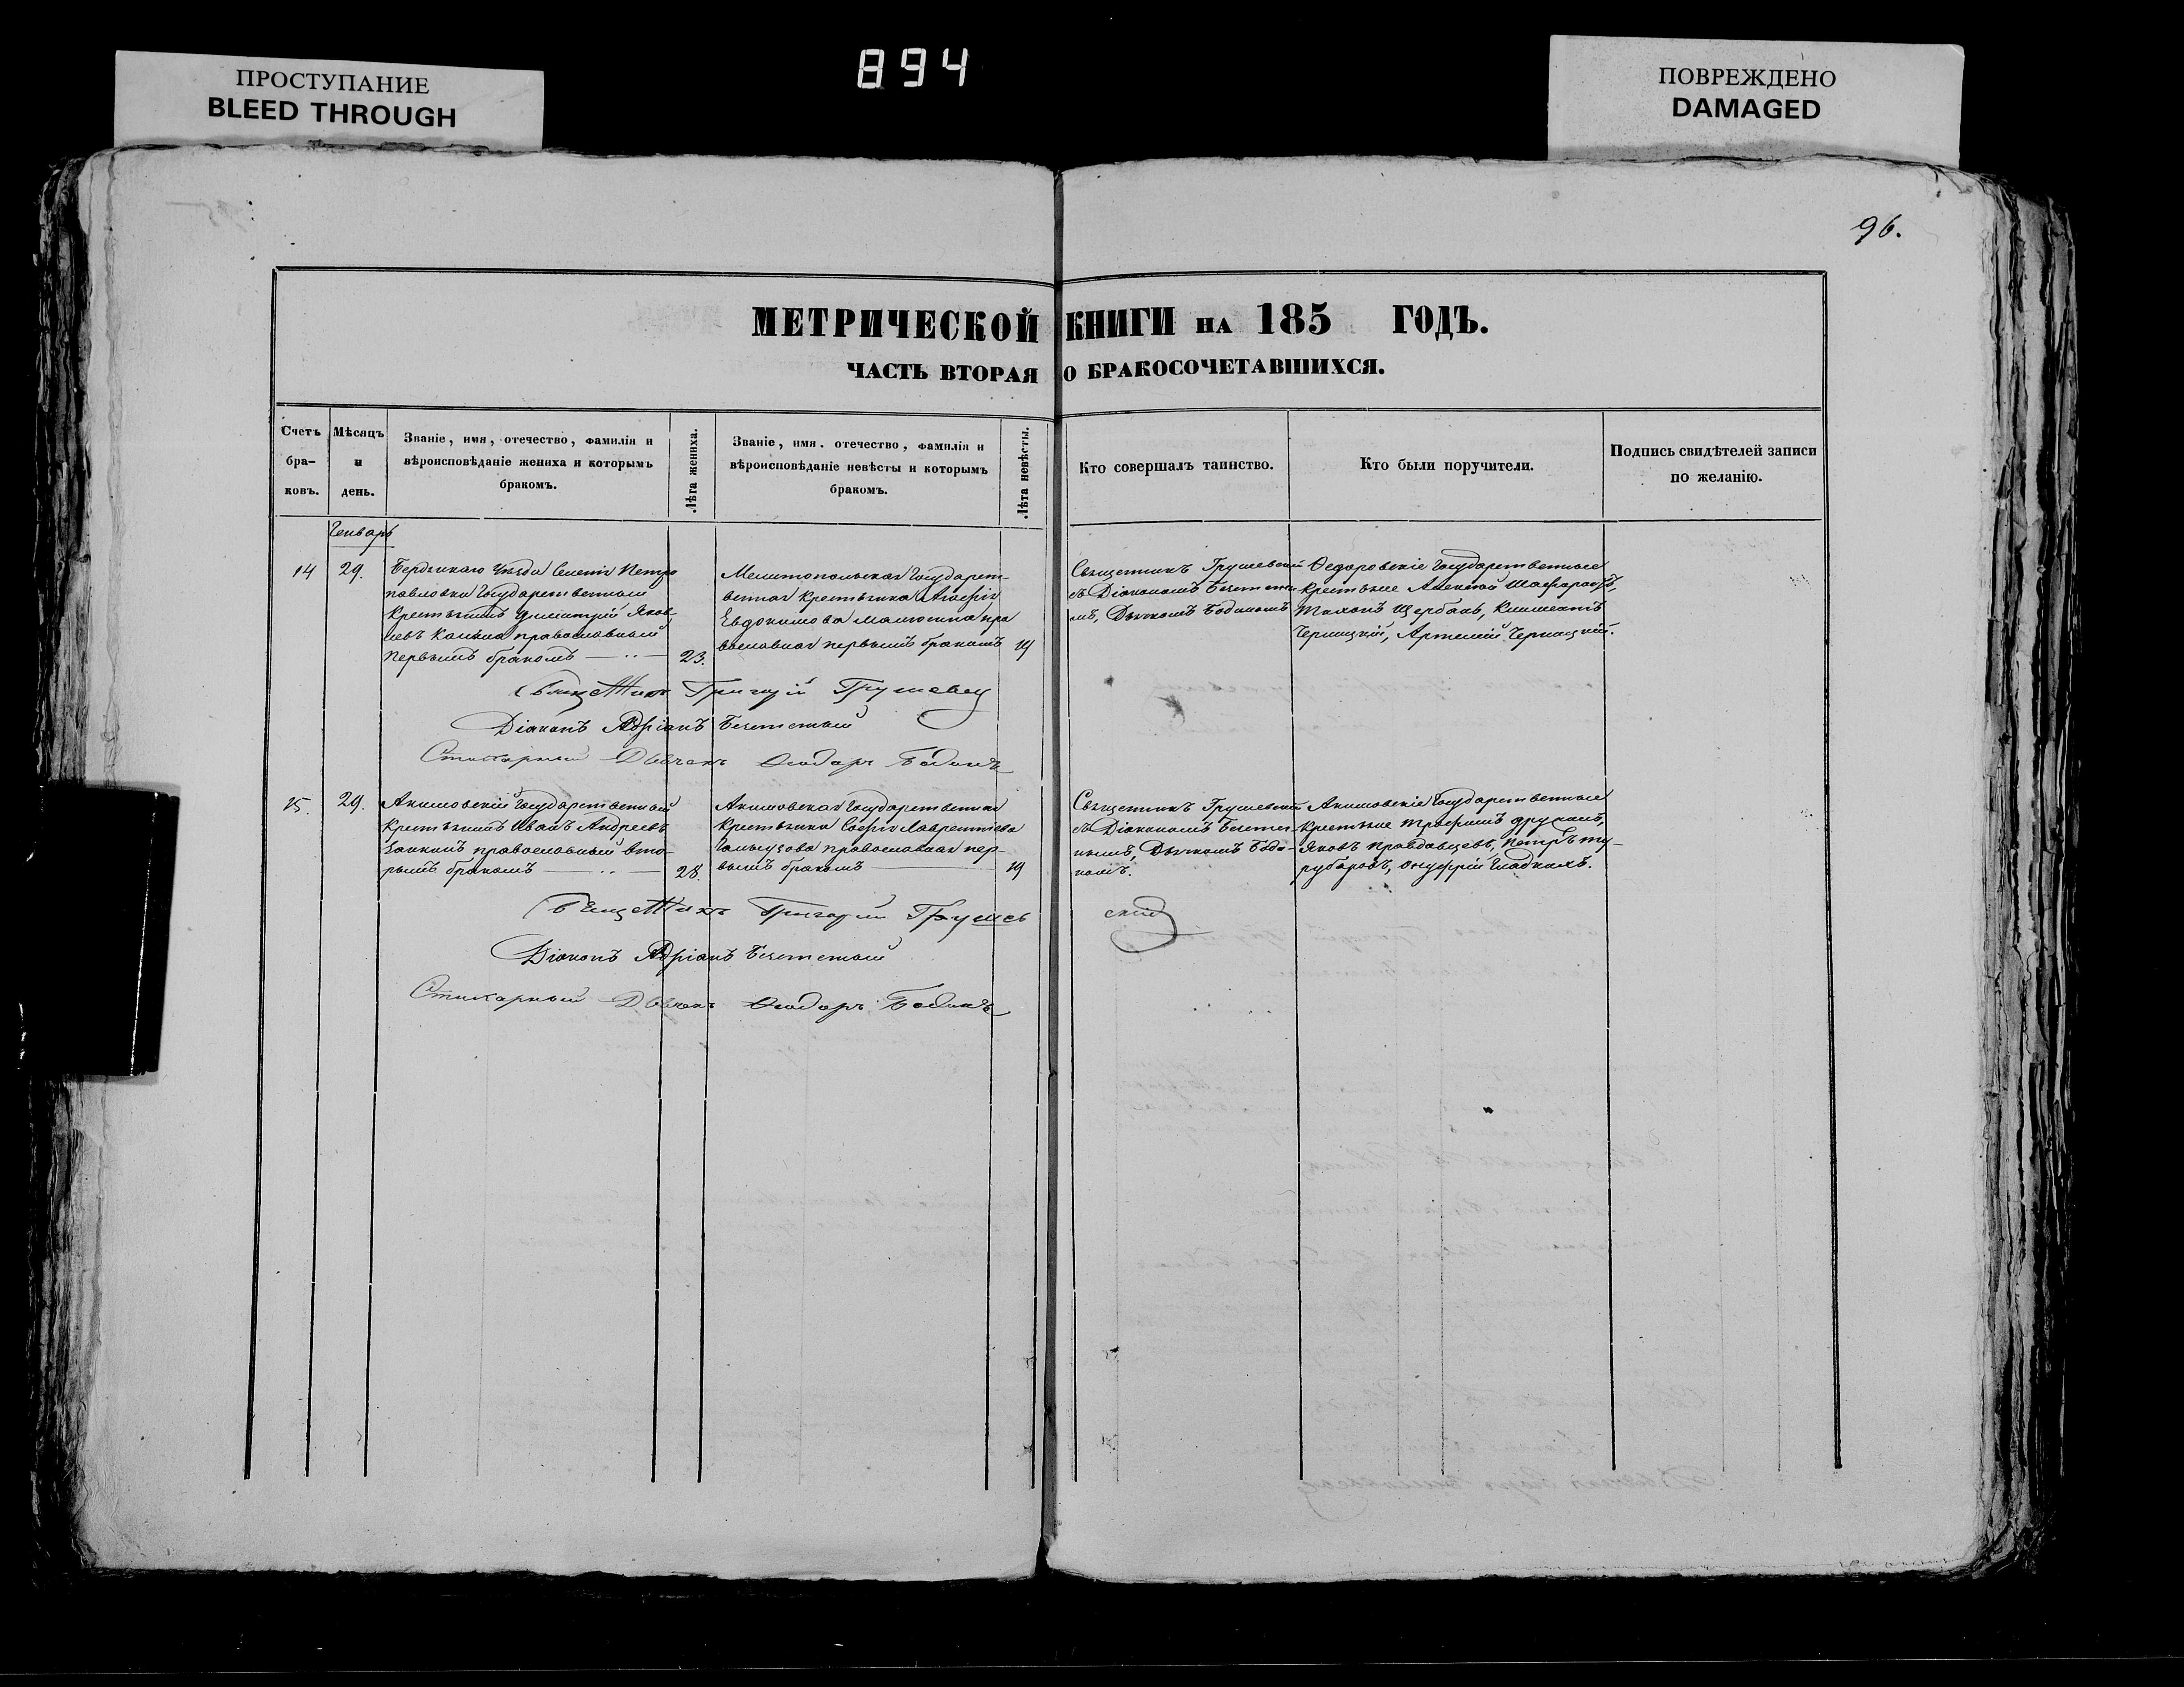 894
ПРОСТУПАНИЕ
BLEED THROUGH
ПОВРЕЖДЕНО
DAMAGED
96.
МЕТРИЧЕСКОЙ КНИГИ НА 185 ГОДЪ.
ЧАСТЬ ВТОРАЯ О БРАКОСОЧЕТАВШИХСЯ.
Счетъ бра- ковъ.
Мѣсяцъ и день.
Званіе, имя, отечество, фамилія и
вѣроисповѣданіе жениха и которымъ
бракомъ.
Лѣта жениха.
Званіе, имя. отечество, фамилія и
вѣроисповѣданіе невѣсты и которымъ
бракомъ.
Лѣта невѣсты.
Кто совершалъ таинство.
Кто были поручители.
Подпись свидѣтелей записи
по желанію.
Генварь
14
29.
Бердянскаго Уѣзда Селенія Петро
павловки Государственный
Крестьянинъ Димитрій Яков-
левъ православный
первымъ бракомъ
23.
Мелитопольская Государст-
венная крестьянка Агафія
Евдокимова пра
вославная первымъ бракомъ
19
Священникъ Грушевскій
съ Діакономъ
Дьячкомъ Бодакомъ
Федоровскіе Государственные
крестьяне Алексѣй
Тихонъ Щербакъ, Климентъ
Черницкій, Артемій Черницкій.
Священникъ Григорій
Діаконъ Адріанъ
Стихарный Дьячекъ Феодоръ Бодакъ
15.
29.
Акимовскій Государственный
Крестьянинъ Иванъ Андреевъ
Заикинъ православный вто-
рымъ бракомъ
28.
Акимовская Государственная
Крестьянка Софія Лаврентіева
православная пер
вымъ бракомъ
19
Священникъ Грушевскій
съ Діакономъ
нымъ, Дьячкомъ Бода-
комъ.
Акимовскіе Государственные
крестьяне Трофимъ
Яковъ Правдавцевъ, Петръ Ту-
рубаровъ, Онуфрій Гладкихъ.
Священникъ Григорій Грушев
скій
Діаконъ Адріанъ
Стихарный Дьячекъ Феодоръ Бодакъ